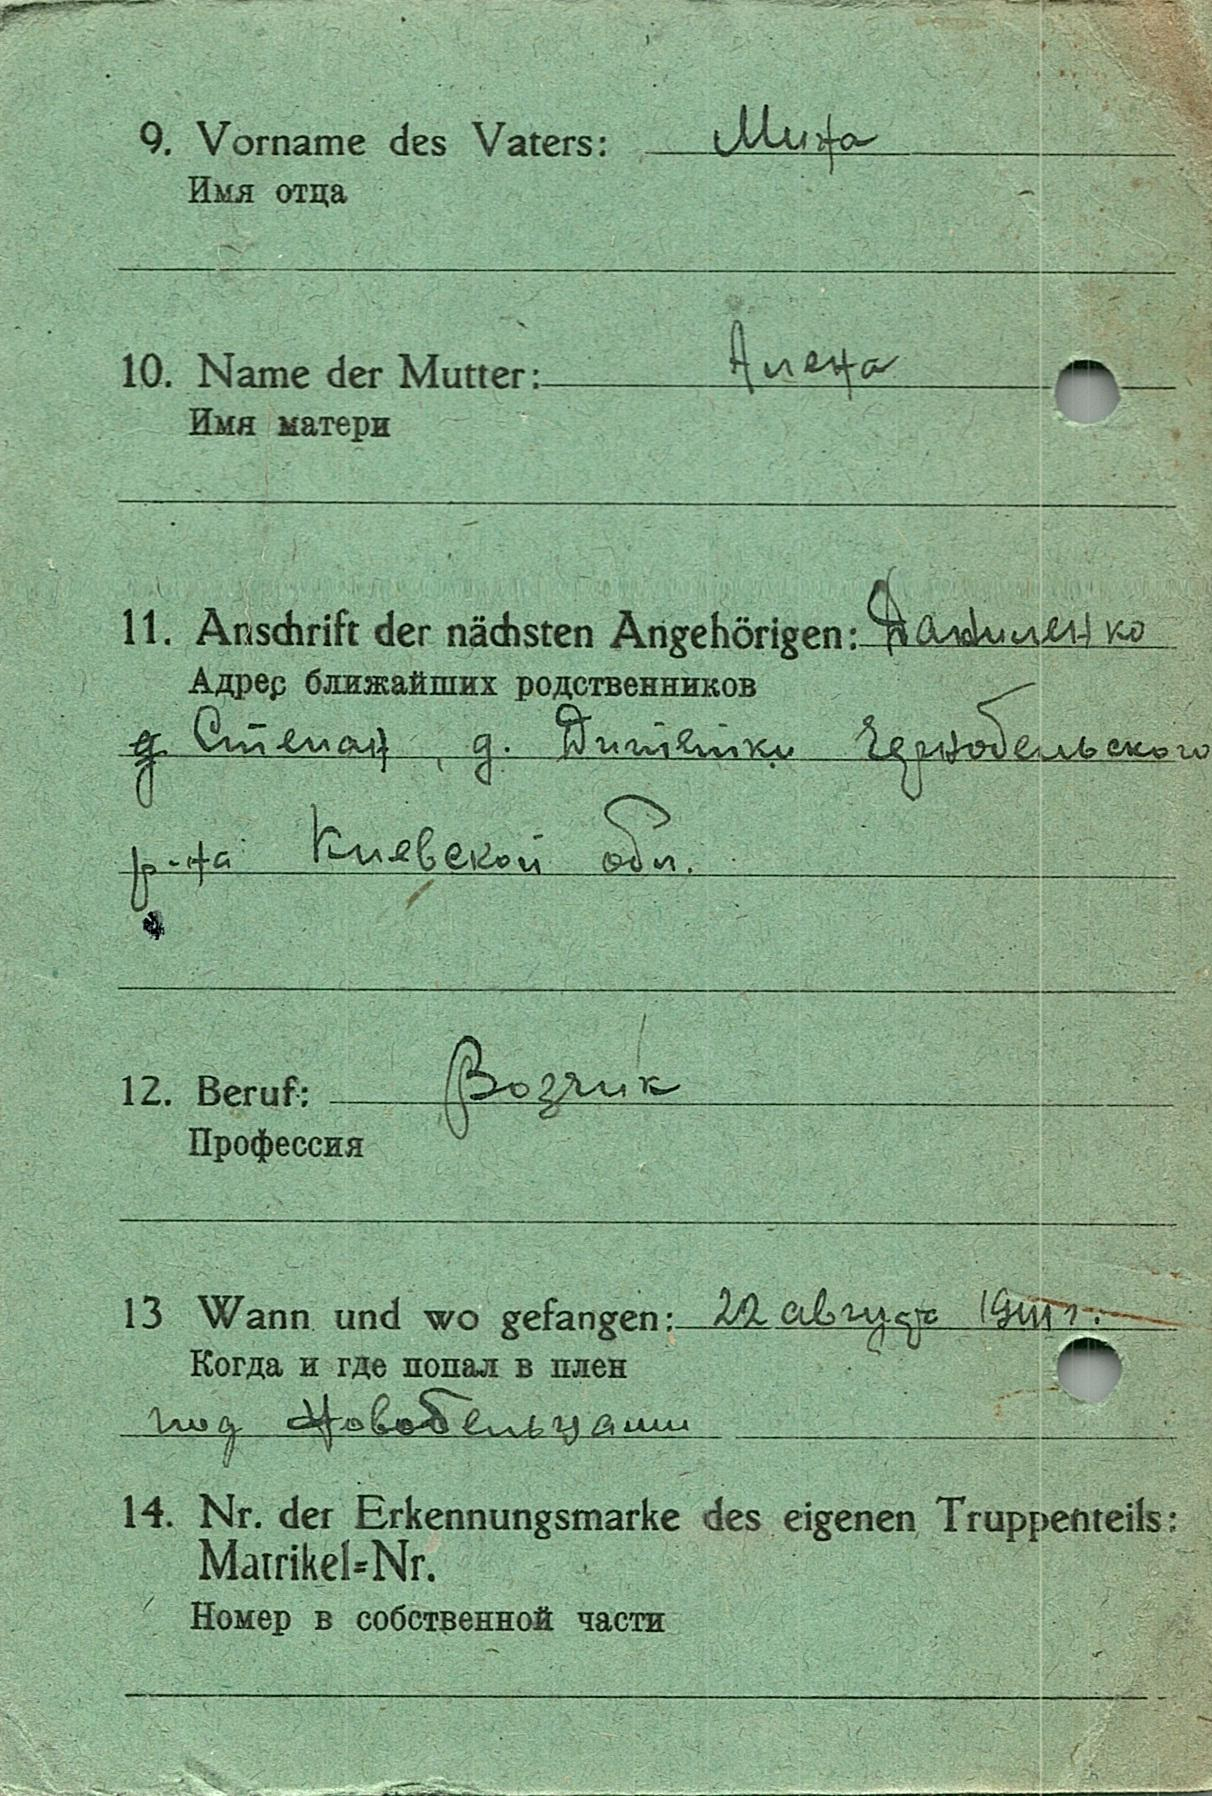 9. Vorname des Vaters: Мина
Имя отца
10. Name der Mutter: Алена
Имя матери
11. Anschrift der nächsten Angehörigen: Даниленко
Адрес ближайших родственников
Степан, д. Дитятки Чернобельского
р-на Киевской обл.
12. Beruf: Возчик
Профессия
13 Wann und wo gefangen: 22 августа 1941 г.
Когда и где попал в плен
под Новобельцами
14. Nr. der Erkennungsmarke des eigenen Truppenteils:
Matrikel=Nr.
Номер в собственной части